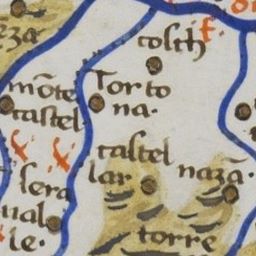 tosch
mōte
castel
Torto
na.
castel
lar
nazā.
sera
ual
le.
torrē